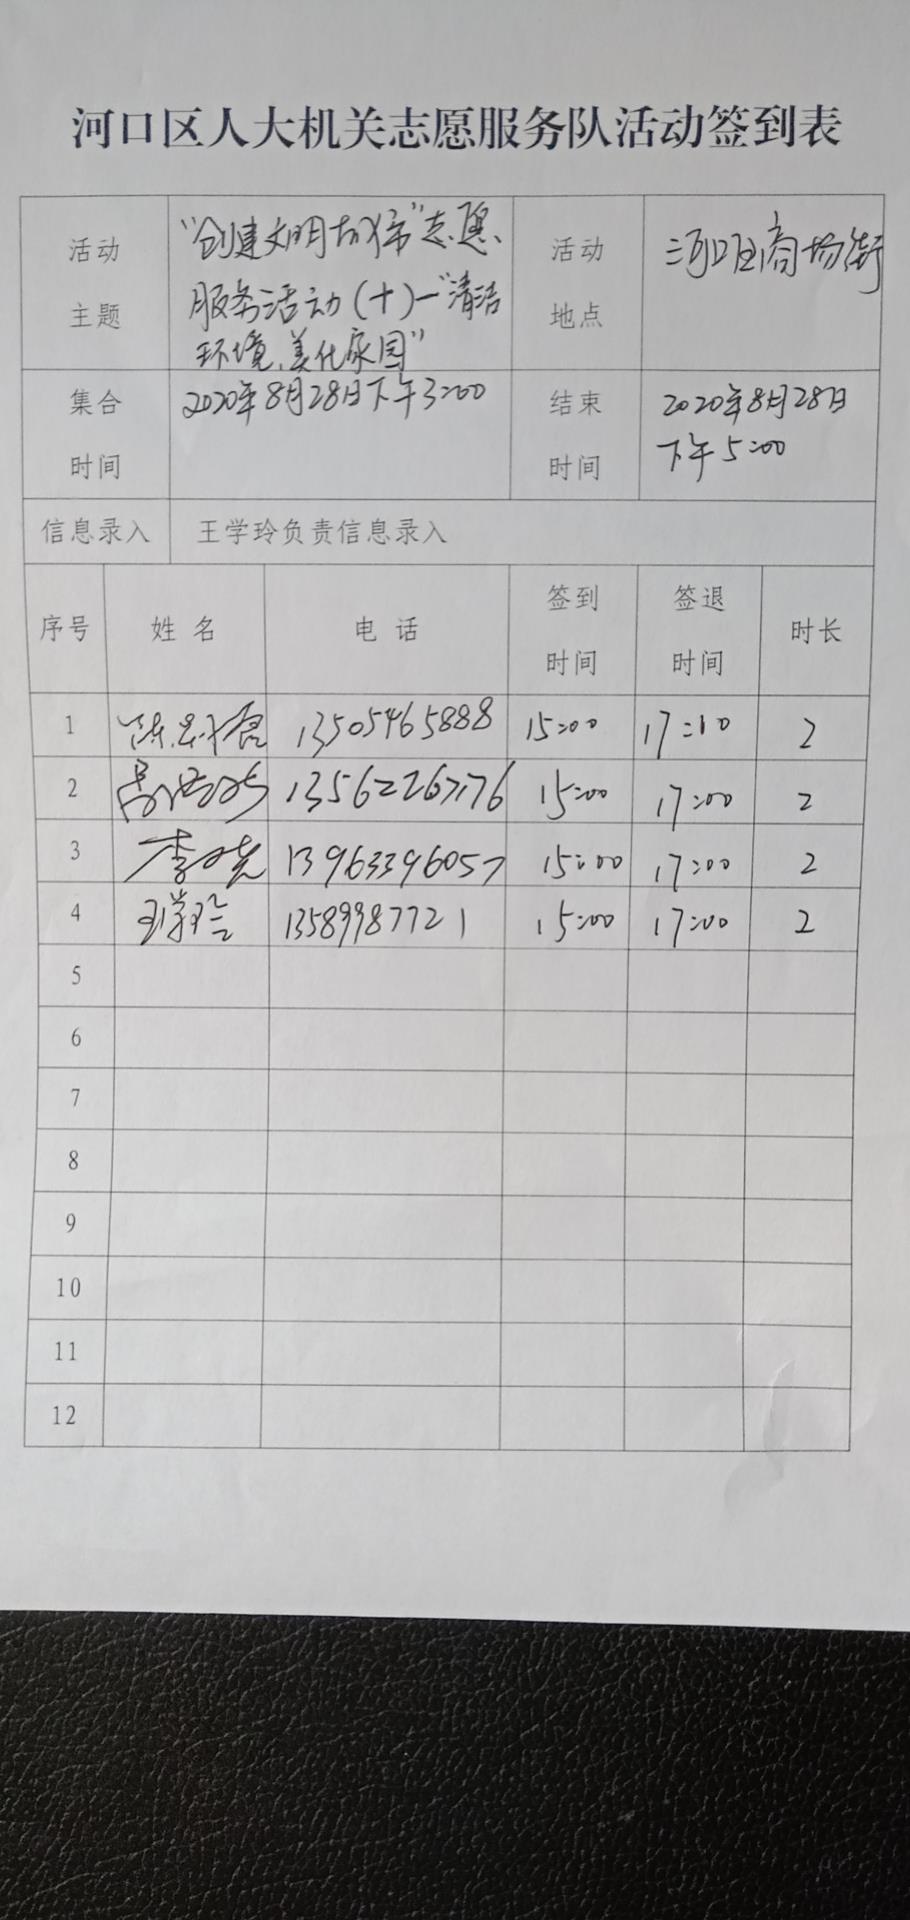 河口区人大机关志愿服务队活动签到表
活动
主题
"创建文明城市"志愿
服务活动(十)—"清洁
环境,美化家园"
活动
地点
河口区商场街
集合
时间
2020年8月28日下午3:00
结束
时间
2020年8月28日
下午5:00
信息录入 王学玲负责信息录入
序号 姓名 电话 签到时间 签退时间 时长
1 13505465888 15:00 17:10 2
2 13562267776 15:00 17:00 2
3 李晓 13963396057 15:00 17:00 2
4 王学玲 13589987721 15:00 17:00 2
5
6
7
8
9
10
11
12